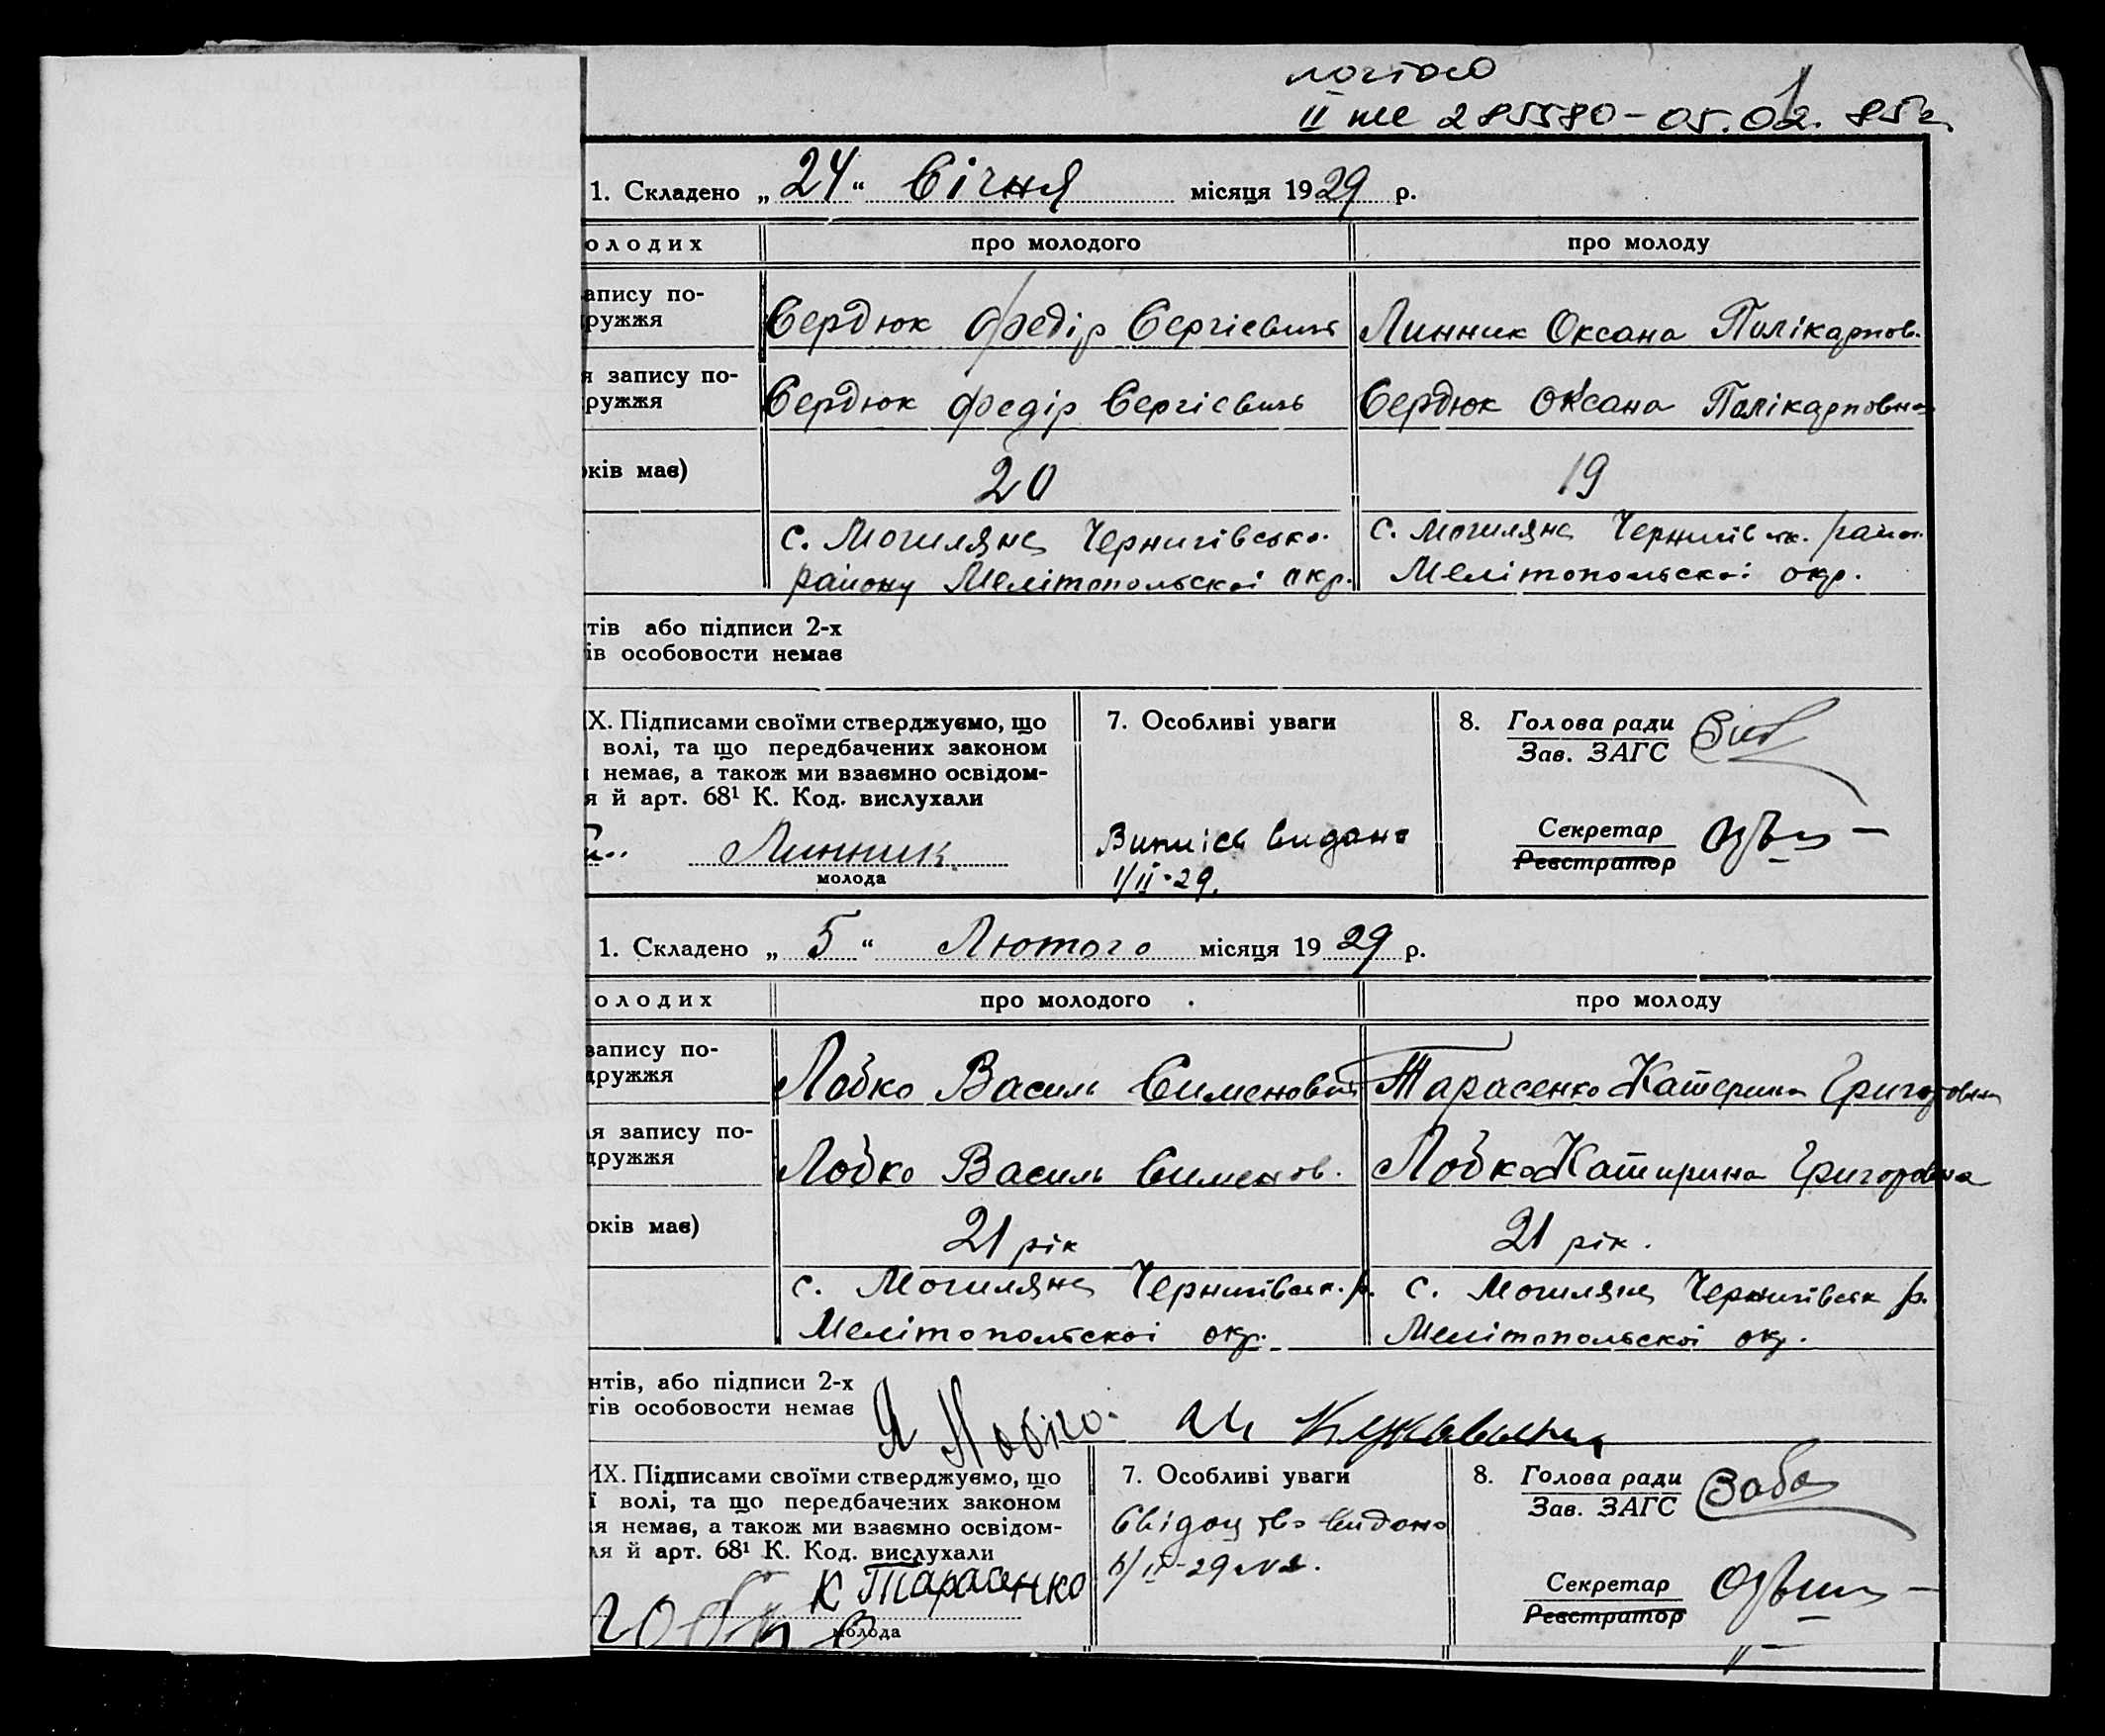 II
285580 – 05.02. 85 г.
1. Складено „ 24 “ Січня місяця 1929 р.
олодих про молодого про молоду
апису по-
ружжя
Сердюк Федір Сергієвичь Линник Оксана Полікарпов.
я запису по-
ружжя
Сердюк Федір Сергієвичь Сердюк Оксана Полікарповна
ків має) 20 19
с. Могиляна Чернигівсько. с. Могиляна Чернигівск. район.
району Мелітопольскоі окр. Мелітопольскоі окр.
тів або підписи 2-х
ів особовости немає
ІХ. Підписами своїми стверджуємо, що
волі, та що передбачених законом
немає, а також ми взаємно освідом-
я й арт. 68¹ К. Код. вислухали
Линник
молода
7. Особливі уваги
Випись видана
1/II-29.
8. Голова ради
Зав. ЗАГС
Секретар
Реєстратор
1. Складено „ 5 “ Лютого місяця 1929 р.
олодих про молодого про молоду
запису по-
дружжя
Лобко Василь Сименович Тарасенко Катерина Григоровна
ля запису по-
дружжя
Лобко Василь Сименов. Лобко Катирина Григоровна
оків має) 21 рік 21 рік.
с. Могиляна Чернигівськ. р. с. Могиляна Чернигівськ р.
Мелітопольскоі окр. Мелітопольскоі окр.
нтів, або підписи 2-х
тів особовости немає
Я Лобко.
ИХ. Підписами своїми стверджуємо, що
ї волі, та що передбачених законом
ія немає, а також ми взаємно освідом-
ля й арт. 68¹ К. Код. вислухали
К Тарасенко
молода
7. Особливі уваги
Свідоцтво видано
8. Голова ради
Зав. ЗАГС
Секретар
Реєстратор